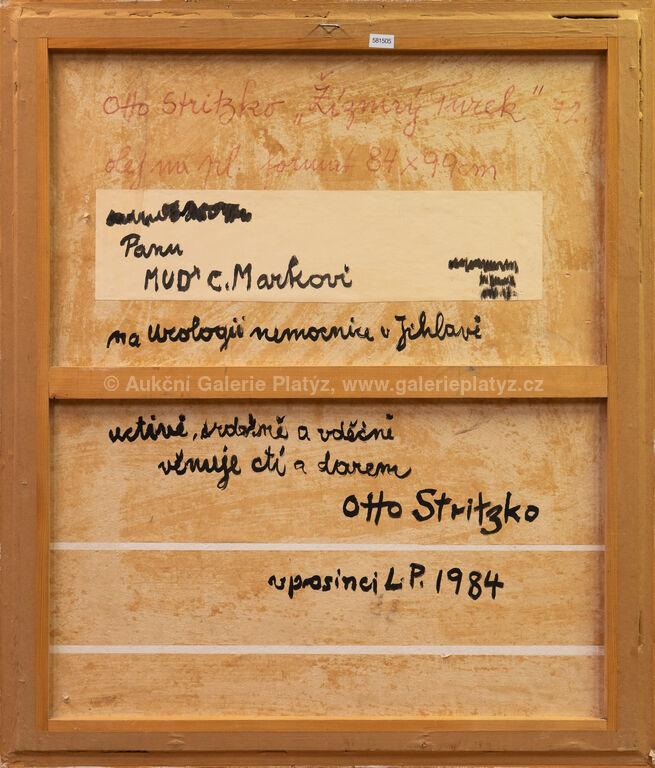 581505
Otto Stritzko „Žíznivý Turek" 72.
olej na pl. formát 84 x 99 cm
Panu
MUDr C. Markovi
na urologii nemocnice v Jihlavě
© Aukční Galerie Platýz, www.galerieplatyz.cz
uctivě, srdečně a vděčně
věnuje ctí a darem
Otto Stritzko
v prosinci L.P. 1984